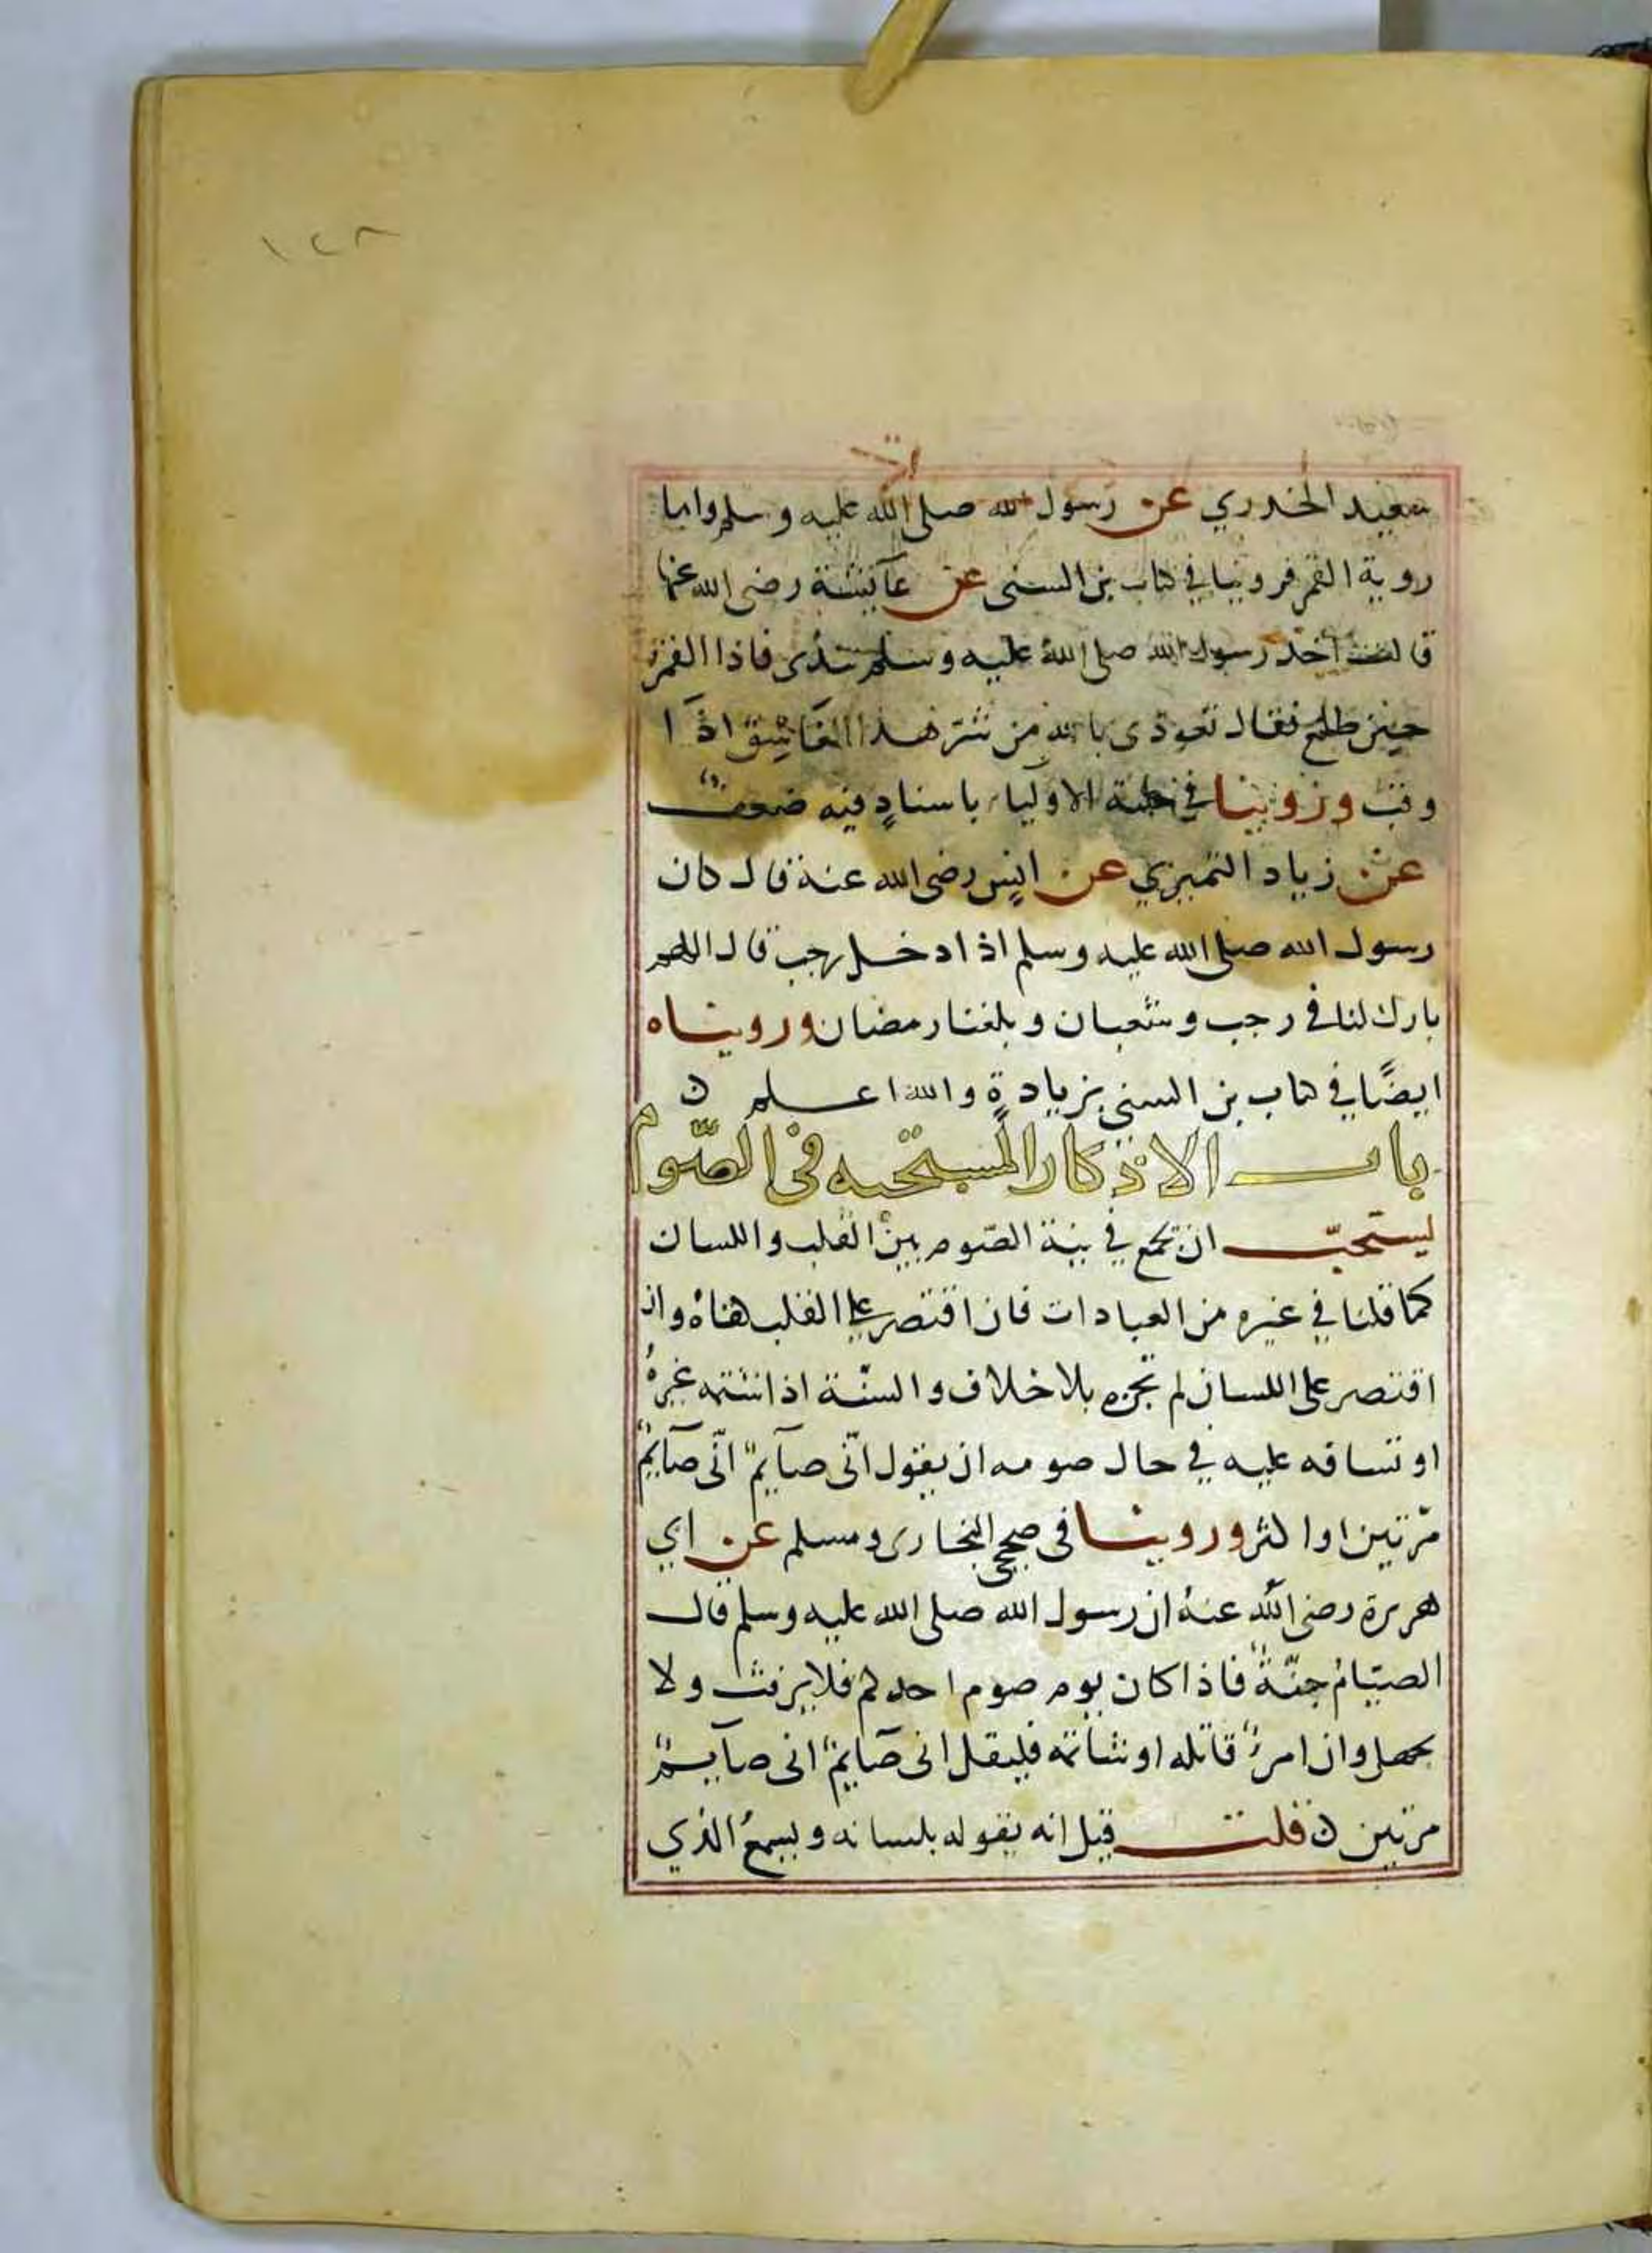 ١٢٨
سعيد الخدري عن رسول الله صلى الله عليه وسلم واما
روية القمر فروينا في كتاب بن السنى عن عآئشة رضى الله عنها
قالت اخذ رسول الله صلى الله عليه وسلم بيدى فاذا القمر
حين طلع فقال تعوذى بالله من شر هذا الغاسق اذا
وقب وروينا في حلية الاوليا باسنادٍ فيه ضعفٌ
عن زياد النميري عن انسٍ رضى الله عنه قال كان
رسول الله صلى الله عليه وسلم اذا دخل رجب قال اللهم
بارك لنا في رجب وشعبان وبلغنا رمضان ورويناه
ايضًا في كتاب بن السنى بزيادةٍ والله اعلم ن
باب الاذكار المستحبه فى الصّوم
يستحبّ ان يجمع في نية الصّوم بين القلب واللسان
كما قلنا في غيره من العبادات فان اقتصر على القلب كفاه وان
اقتصر على اللسان لم تجزه بلا خلاف والسنّة اذا شتمه غيرهُ
او تسافه عليه في حال صومه ان يقول انّى صآيمٌ انّى صآيمٌ
مّرتين او اكثر وروينا فى صحيحي البخارى ومسلم عن ابي
هريرة رضى الله عنهُ ان رسول الله صلى الله عليه وسلم قال
الصيّامُ جنّةٌ فاذا كان يوم صوم احدكم فلا يرفث ولا
يجهل وان امرءٌ قاتله او شاتمه فليقل انى صآيمٌ انى صآيمٌ
مرتين ن قلت قيل انه يقوله بلسانه ويسمعُ الذي